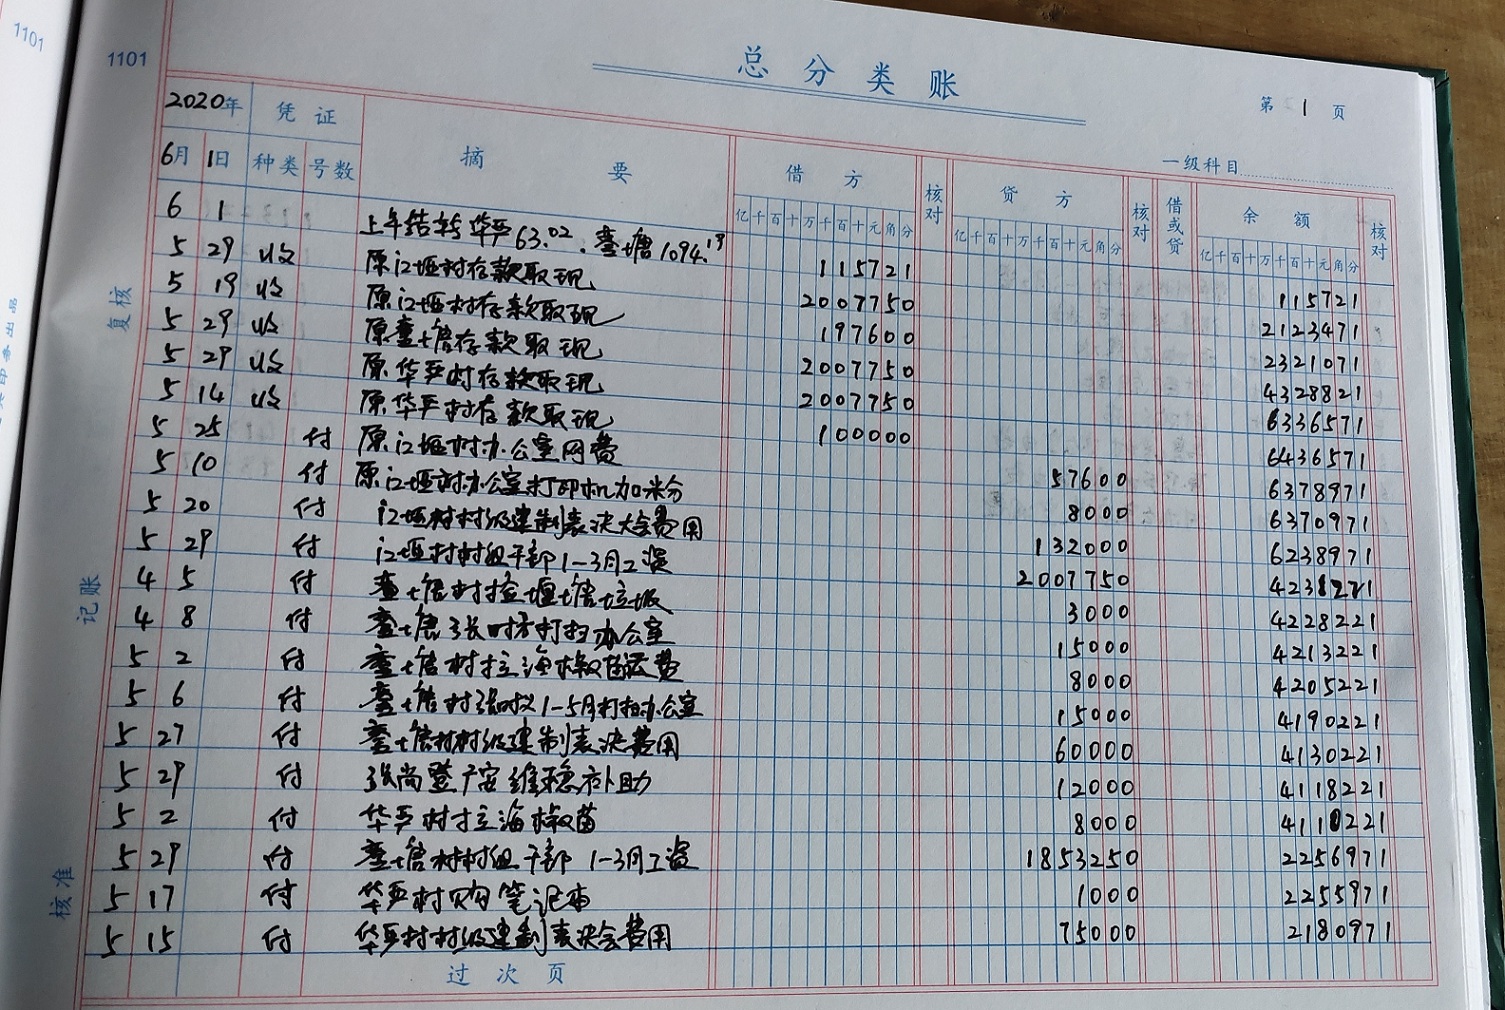 1101
1101
总分类账
第 1 页
一级科目
2020年 凭证 摘要 借方 核对 贷方 核对 借或贷 余额 核对
6月 1日 种类 号数 亿千百十万千百十元角分 亿千百十万千百十元角分 亿千百十万千百十元角分
6 1 上年结转华严63.02. 堰塘1094.19 115721 115721
5 29 收 原江堰村存款取现 2007750 2123471
5 19 收 存款取现 197600 2321071
5 29 收 存款取现 2007750 4328821
5 29 收 原华严村存款取现 2007750 6336571
5 14 收 原华严村存款取现 100000 6436571
5 25 付 原江堰村办公室网费 57600 6378971
5 10 付 原江堰村办公室打印机加米分 8000 6370971
5 20 付 江堰村村级建制表决大会费用 132000 6238971
5 29 付 江堰村村组干部1-3月工资 2007750 4231221
4 5 付 塘村捡堰塘垃圾 3000 4228221
4 8 付 打扫办公室 15000 4213221
5 2 付 塘村拉海椒苗运费 8000 4205221
5 6 付 塘村 1-5月打扫办公室 15000 4190221
5 27 付 塘村村级建制表决费用 60000 4130221
5 29 付 张尚 维稳补助 12000 4118221
5 2 付 华严村拉海椒苗 8000 4110221
5 29 付 塘村村组干部 1-3月工资 1853250 2256971
5 17 付 华严村购笔记本 1000 2255971
5 15 付 华严村村级建制表决会费用 75000 2180971
过次页
复核
记账
核准